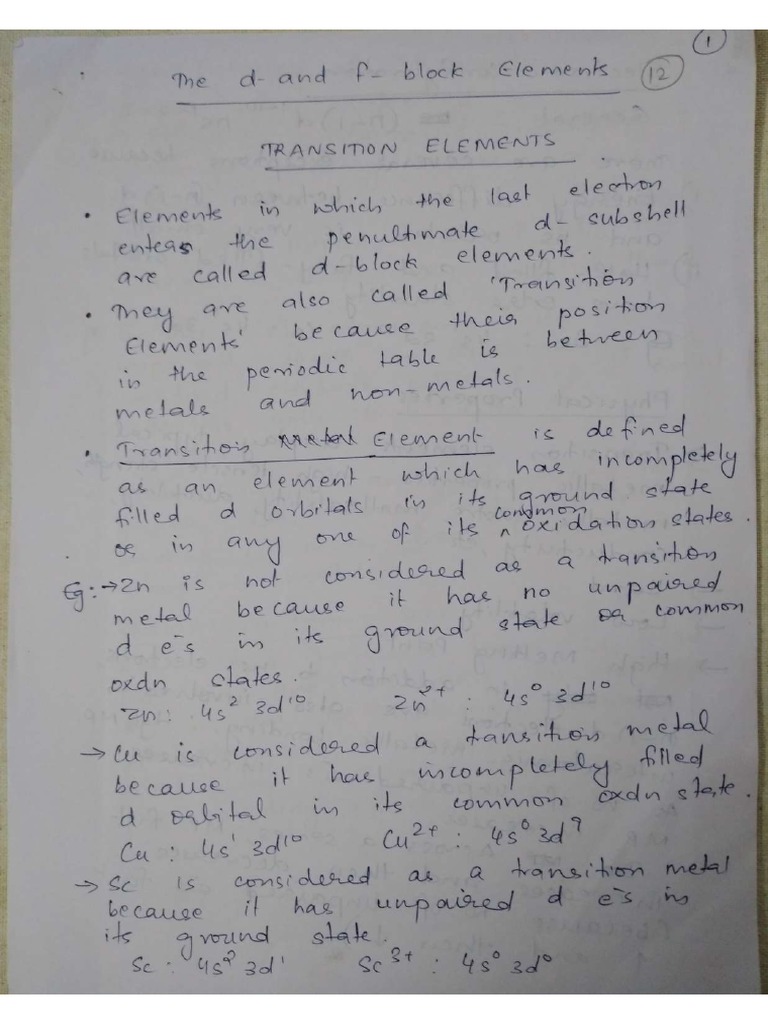 1
The d- and f- block Elements 12
TRANSITION ELEMENTS
• Elements in which the last electron
enters the penultimate d- subshell
are called d-block elements.
• They are also called 'Transition
Elements' because their position
in the periodic table is between
metals and non-metals.
• Transition Element is defined
as an element which has incompletely
filled d orbitals in its ground state
or in any one of its common oxidation states.
Eg: → Zn is not considered as a transition
metal because it has no unpaired
d e⁻s in its ground state or common
oxdn states.
Zn: 4s² 3d¹⁰ Zn²⁺ : 4s⁰ 3d¹⁰
→ Cu is considered a transition metal
because it has incompletely filled
d orbital in its common oxdn state.
Cu : 4s¹ 3d¹⁰ Cu²⁺ : 4s⁰ 3d⁹
→ Sc is considered as a transition metal
because it has unpaired d e⁻s in
its ground state.
Sc : 4s² 3d¹ Sc³⁺ : 4s⁰ 3d⁰